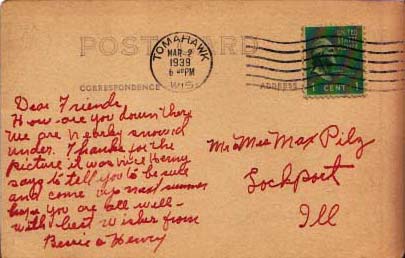 POST CARD
TOMAHAWK
MAR 2
1939
6 PM
WIS.
UNITED STATES POSTAGE
1 CENT 1
CORRESPONDENCE
ADDRESS
Dear Friends,
How are you down there
we are nearly snowed
under. Thanks for the
picture it was nice Henry
says to tell you to be sure
and come up next summer
hope you are all well-
with best wishes from
Bernie & Henry
Mr & Mrs Max Pilz
Lockport
Ill